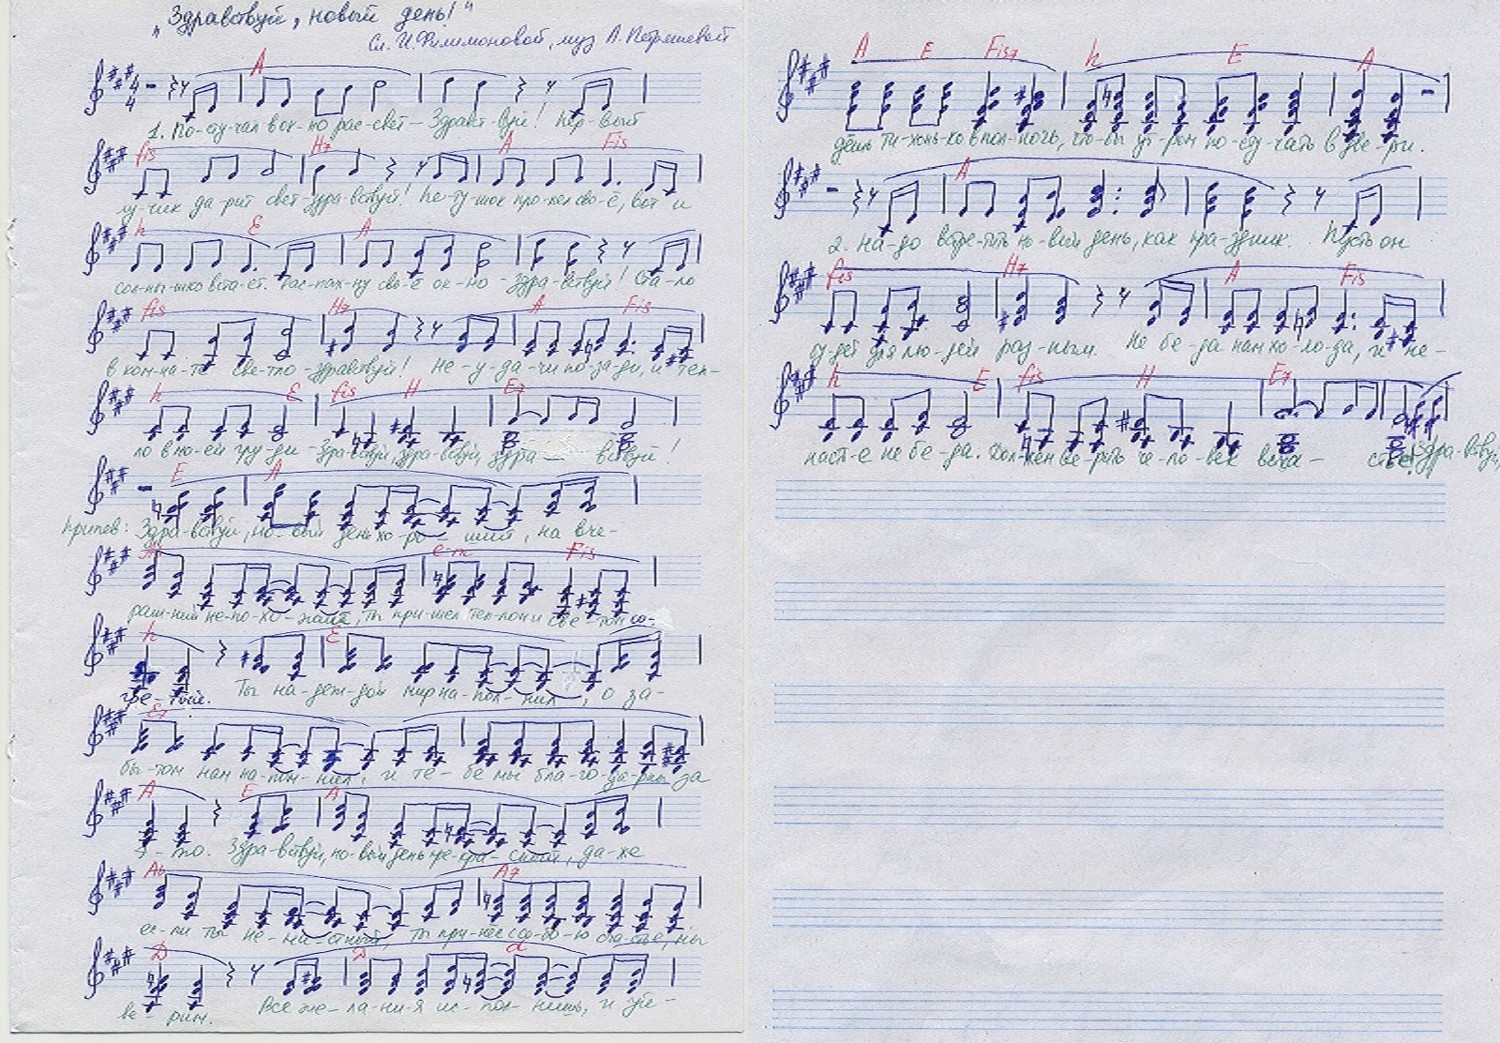 „Здравствуй, новый день!"
Сл. И. Филимоновой, муз А. Петряшевой
A
1. По-сту-чал в ок-но рас-свет- Здравст-вуй! Пер-вый
fis H7 A Fis
лу-чик да-рит свет-здра-вствуй! Пе-ту-шок про-пел сво-ё, вот и
h E A
сол-ны-шко вста-ёт. Рас-пах-ну сво-ё ок-но-здра-вствуй! Ста-ло
fis H7 A Fis
в ком-на-те све-тло-здравствуй! Не-у-да-чи по-за-ди, и теп-
h E fis H E7
ло в мо-ей гру-ди-здра-вствуй, здра-вствуй, здра- вствуй!
E A
Припев: Здра-вствуй, но-вый день хо-ро-ший, на вче-
Fis
раш-ний не-по-хо-жий, ты при-шел теп-лом и све-том со-
h E
гре-тый. Ты на-деж-дой мир на-пол-нил, о за-
E7
бы-том нам на-пом-нил, и те-бе мы бла-го-да-рны за
A E A
э-то. Здра-вствуй, но-вый день пре-кра-сный, да-же
A7
ес-ли ты не-на-стный, ты при-нёс с со-бо-ю сча-стье, мы
D D d
ве-рим. Все же-ла-ни-я ис-пол-нишь, и уй-
A E Fis7 h E A
дёшь ти-хонь-ко в пол-ночь, что-бы ут-ром по-сту-чать в две-ри.
A
2. На-до встре-тить но-вый день, как пра-здник. Пусть он
fis H7 A Fis
бу-дет для лю-дей раз-ным. Не бе-да нам хо-ло-да, и не-
h E fis H E7
наст-е не бе-да. Дол-жен ве-рить че-ло-век в сча- стье! Здра-вствуй,